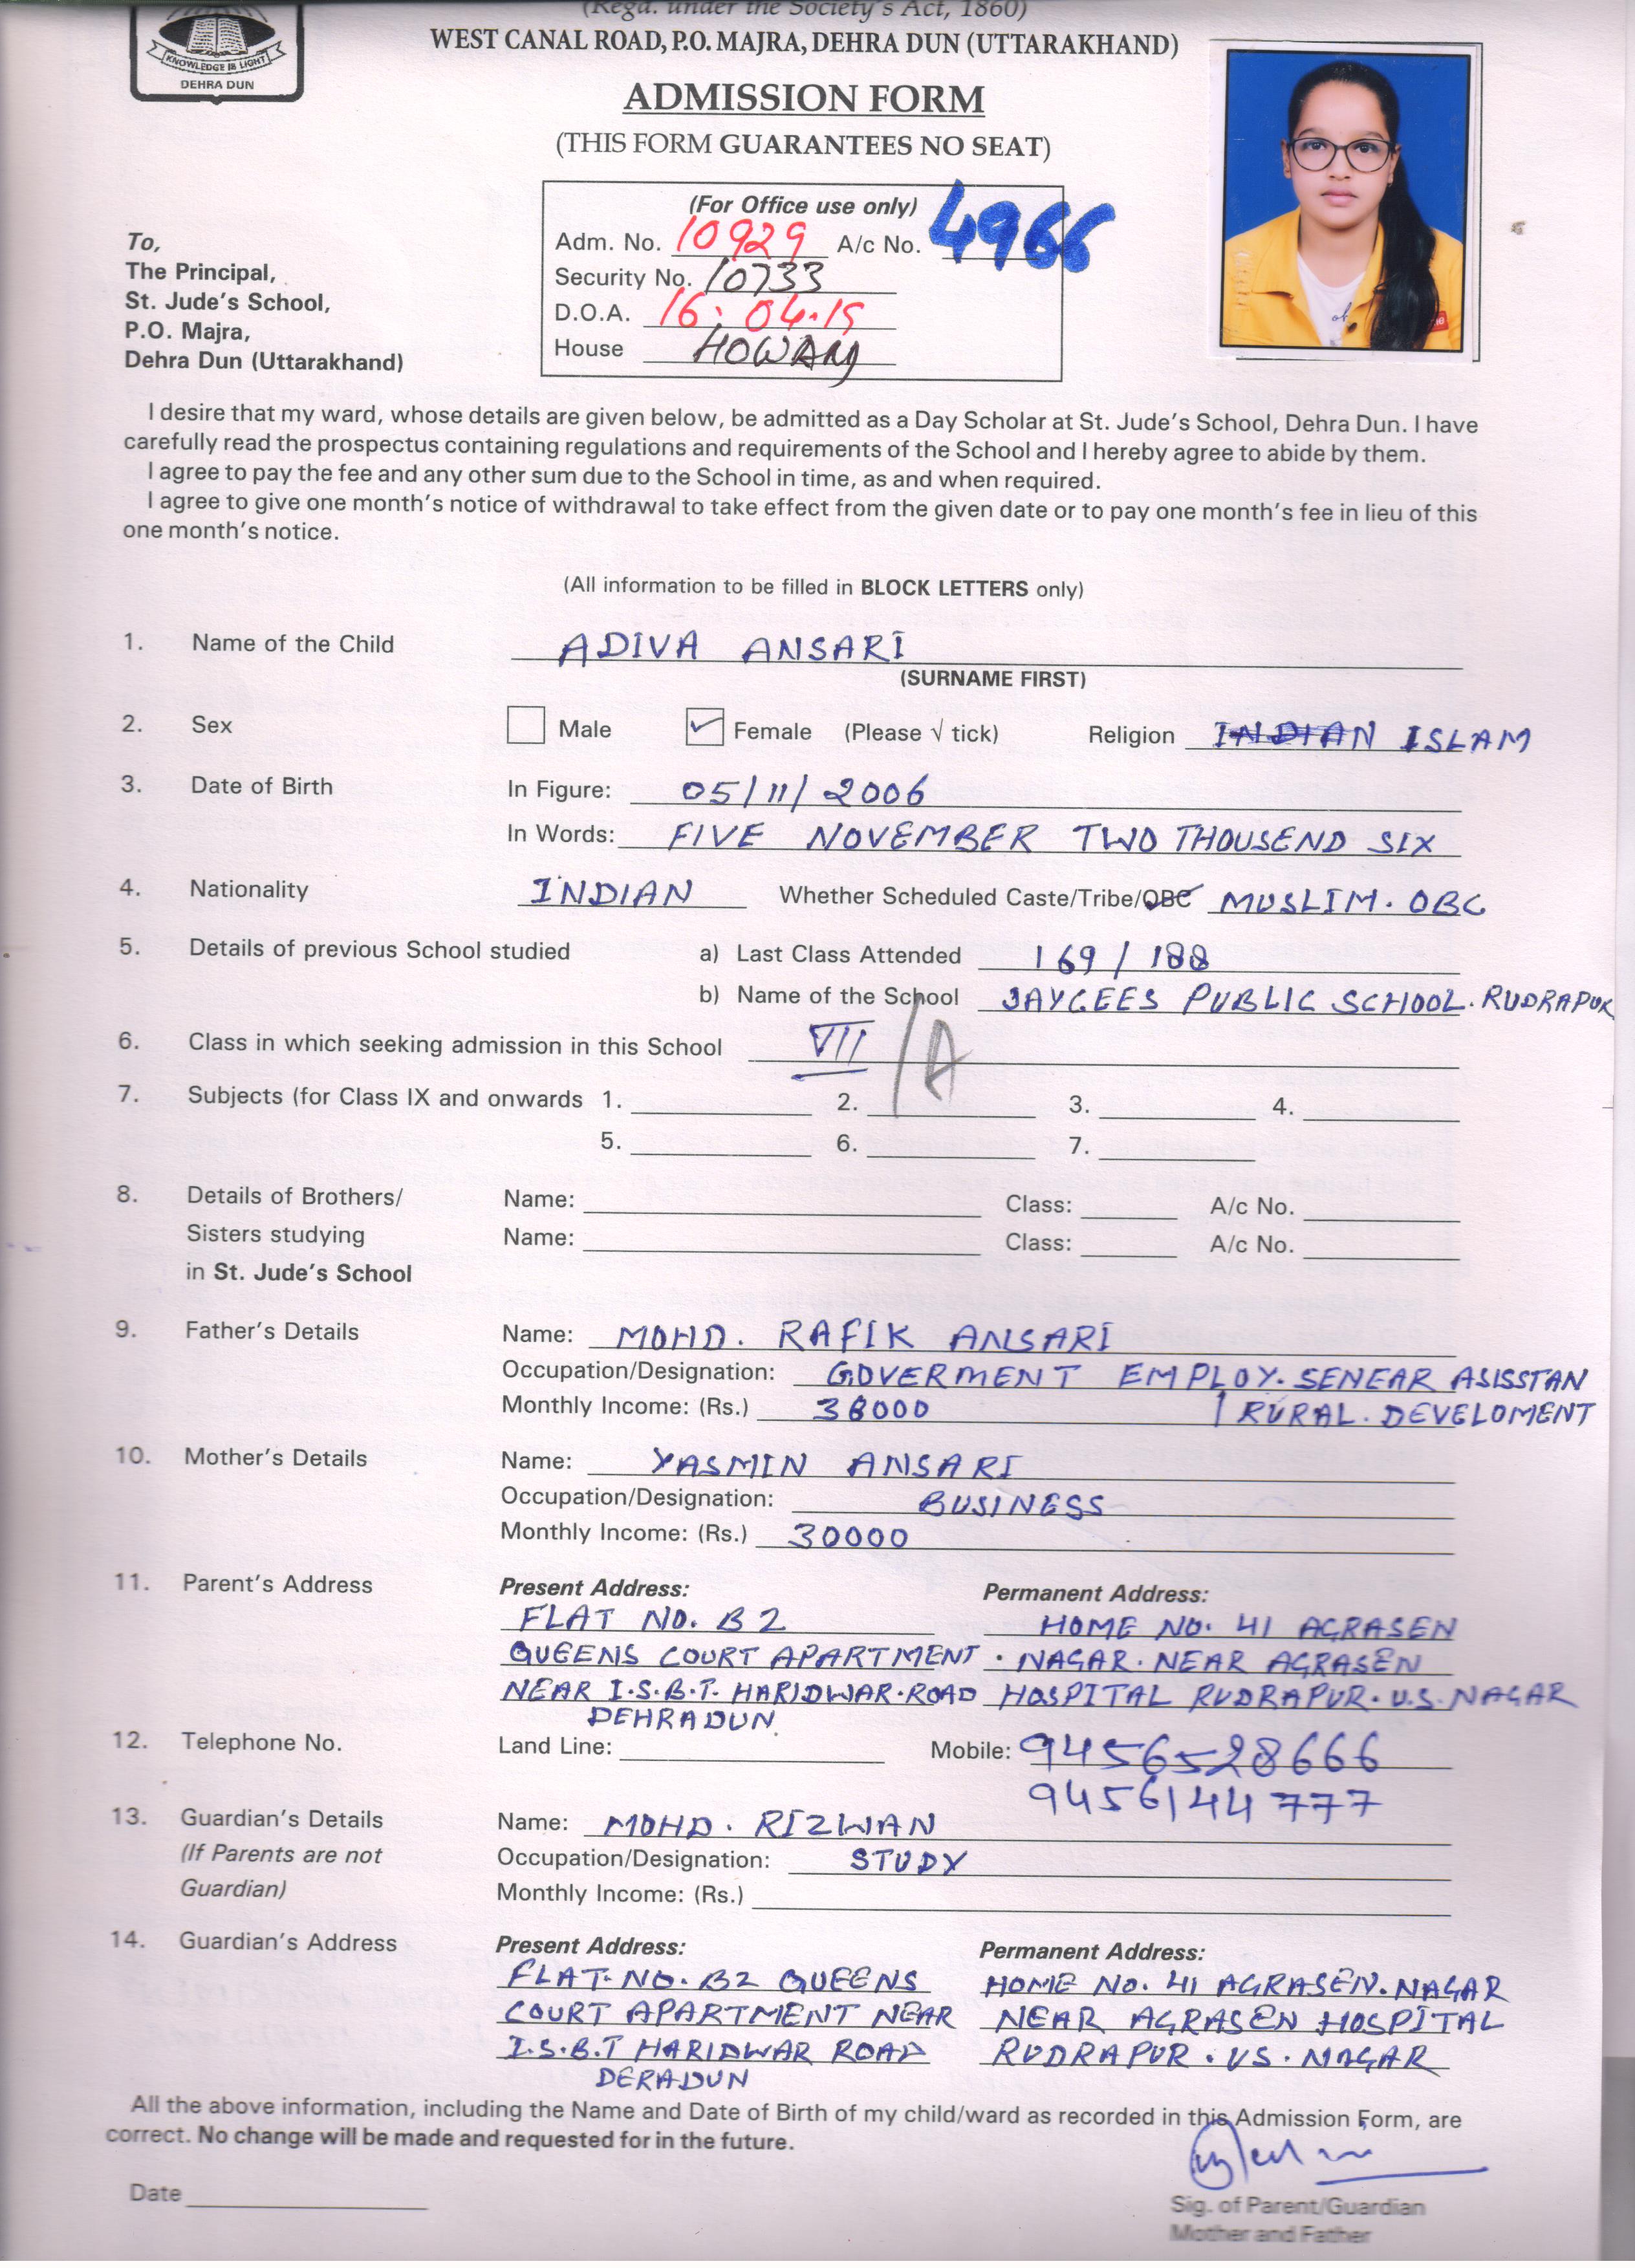 (Regd. under the Society's Act, 1860)
WEST CANAL ROAD, P.O. MAJRA, DEHRA DUN (UTTARAKHAND)
KNOWLEDGE IS LIGHT
DEHRA DUN
ADMISSION FORM
(THIS FORM GUARANTEES NO SEAT)
(For Office use only)
Adm. No. 10929 A/c No. 4966
Security No. 10733
D.O.A. 16.04.19
House HOWARD
To,
The Principal,
St. Jude's School,
P.O. Majra,
Dehra Dun (Uttarakhand)
I desire that my ward, whose details are given below, be admitted as a Day Scholar at St. Jude's School, Dehra Dun. I have
carefully read the prospectus containing regulations and requirements of the School and I hereby agree to abide by them.
I agree to pay the fee and any other sum due to the School in time, as and when required.
I agree to give one month's notice of withdrawal to take effect from the given date or to pay one month's fee in lieu of this
one month's notice.
(All information to be filled in BLOCK LETTERS only)
1. Name of the Child ADIVA ANSARI
(SURNAME FIRST)
2. Sex Male Female (Please √ tick) Religion INDIAN ISLAM
3. Date of Birth In Figure: 05/11/2006
In Words: FIVE NOVEMBER TWO THOUSEND SIX
4. Nationality INDIAN Whether Scheduled Caste/Tribe/OBC MUSLIM. OBC
5. Details of previous School studied a) Last Class Attended 169/188
b) Name of the School JAYCEES PUBLIC SCHOOL. RUDRAPUR
6. Class in which seeking admission in this School VII /A
7. Subjects (for Class IX and onwards 1. 2. 3. 4.
5. 6. 7.
8. Details of Brothers/ Name: Class: A/c No.
Sisters studying Name: Class: A/c No.
in St. Jude's School
9. Father's Details Name: MOHD. RAFIK ANSARI
Occupation/Designation: GOVERMENT EMPLOY. SENEAR ASISSTAN
Monthly Income: (Rs.) 38000 / RURAL. DEVELOMENT
10. Mother's Details Name: YASMIN ANSARI
Occupation/Designation: BUSINESS
Monthly Income: (Rs.) 30000
11. Parent's Address Present Address: Permanent Address:
FLAT NO. B2 HOME NO. 41 AGRASEN
QUEENS COURT APARTMENT . NAGAR. NEAR AGRASEN
NEAR I.S.B.T. HARIDWAR.ROAD HOSPITAL RUDRAPUR. U.S. NAGAR
DEHRADUN.
12. Telephone No. Land Line: Mobile: 9456528666
9456144777
13. Guardian's Details Name: MOHD. RIZWAN
(If Parents are not Occupation/Designation: STUDY
Guardian) Monthly Income: (Rs.)
14. Guardian's Address Present Address: Permanent Address:
FLAT. NO. B2 QUEENS HOME NO. 41 AGRASEN. NAGAR
COURT APARTMENT NEAR NEAR AGRASEN HOSPITAL
I.S.B.T HARIDWAR ROAD RUDRAPUR. US. NAGAR
DERADUN
All the above information, including the Name and Date of Birth of my child/ward as recorded in this Admission Form, are
correct. No change will be made and requested for in the future.
Date
Sig. of Parent/Guardian
Mother and Father